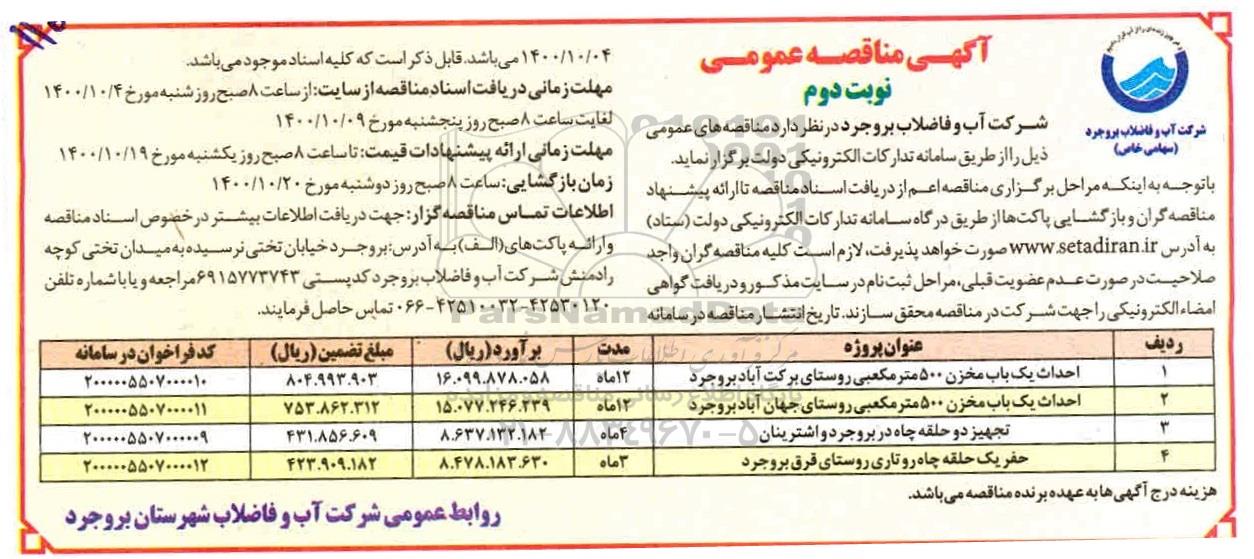 آگهی مناقصه عمومی
نوبت دوم
شرکت آب و فاضلاب بروجرد
(سهامی خاص)
شرکت آب و فاضلاب بروجرد در نظر دارد مناقصه های عمومی
ذیل را از طریق سامانه تدارکات الکترونیکی دولت برگزار نماید.
با توجه به اینکه مراحل برگزاری مناقصه اعم از دریافت اسناد مناقصه تا ارائه پیشنهاد
مناقصه گران و بازگشایی پاکت ها از طریق درگاه سامانه تدارکات الکترونیکی دولت (ستاد)
به آدرس www.setadiran.ir صورت خواهد پذیرفت، لازم است کلیه مناقصه گران واجد
صلاحیت در صورت عدم عضویت قبلی، مراحل ثبت نام در سایت مذکور و دریافت گواهی
امضاء الکترونیکی را جهت شرکت در مناقصه محقق سازند. تاریخ انتشار مناقصه در سامانه
۱۴۰۰/۱۰/۰۴ می باشد. قابل ذکر است که کلیه اسناد موجود می باشد.
مهلت زمانی دریافت اسناد مناقصه از سایت: از ساعت ۸ صبح روز شنبه مورخ ۱۴۰۰/۱۰/۴
لغایت ساعت ۸ صبح روز پنجشنبه مورخ ۱۴۰۰/۱۰/۰۹
مهلت زمانی ارائه پیشنهادات قیمت: تا ساعت ۸ صبح روز یکشنبه مورخ ۱۴۰۰/۱۰/۱۹
زمان بازگشایی: ساعت ۸ صبح روز دوشنبه مورخ ۱۴۰۰/۱۰/۲۰
اطلاعات تماس مناقصه گزار: جهت دریافت اطلاعات بیشتر در خصوص اسناد مناقصه
و ارائه پاکت های (الف) به آدرس: بروجرد خیابان تختی نرسیده به میدان تختی کوچه
رادمنش شرکت آب و فاضلاب بروجرد کدپستی ۶۹۱۵۷۷۳۷۴۳ مراجعه و یا با شماره تلفن
۴۲۵۳۰۱۲۰-۴۲۵۱۰۰۳۲-۰۶۶ تماس حاصل فرمایند.
ردیف عنوان پروژه مدت برآورد (ریال) مبلغ تضمین (ریال) کد فراخوان در سامانه
۱ احداث یک باب مخزن ۵۰۰ متر مکعبی روستای برکت آباد بروجرد ۱۲ماه ۱۶.۰۹۹.۸۷۸.۰۵۸ ۸۰۴.۹۹۳.۹۰۳ ۲۰۰۰۰۰۵۵۰۷۰۰۰۰۱۰
۲ احداث یک باب مخزن ۵۰۰ متر مکعبی روستای جهان آباد بروجرد ۱۲ماه ۱۵.۰۷۷.۲۴۶.۲۳۹ ۷۵۳.۸۶۲.۳۱۲ ۲۰۰۰۰۰۵۵۰۷۰۰۰۰۱۱
۳ تجهیز دو حلقه چاه در بروجرد و اشترینان ۴ماه ۸.۶۳۷.۱۳۲.۱۸۲ ۴۳۱.۸۵۶.۶۰۹ ۲۰۰۰۰۰۵۵۰۷۰۰۰۰۰۹
۴ حفر یک حلقه چاه روتاری روستای قرق بروجرد ۳ماه ۸.۴۷۸.۱۸۳.۶۳۰ ۴۲۳.۹۰۹.۱۸۲ ۲۰۰۰۰۰۵۵۰۷۰۰۰۰۱۲
هزینه درج آگهی ها به عهده برنده مناقصه می باشد.
روابط عمومی شرکت آب و فاضلاب شهرستان بروجرد
ParsNamadData
۰۲۱-۸۸۳۴۹۶۷۰-۵